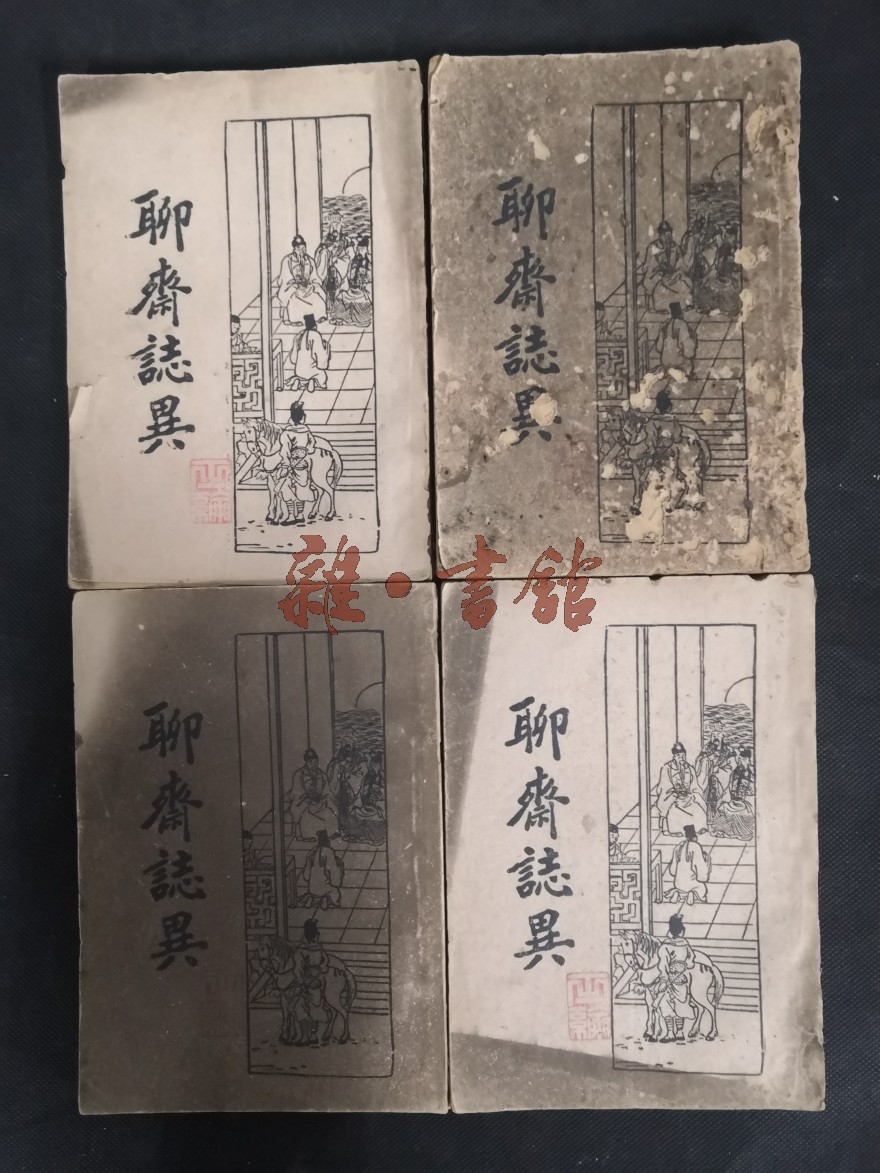 聊齋誌異
聊齋誌異
雜·書館
聊齋誌異
聊齋誌異